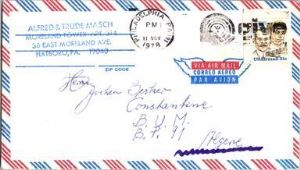 ALFRED & TRUDE MASCH
MORELAND TOWER APT. 314
56 EAST MORELAND AVE.
HATBORO, PA.
19040
ZIP CODE
PHILADELPHIA, PA
PM
11 NOV
1979
VIA AIR MAIL
CORREO AEREO
PAR AVION
Herrn
Jochen
Constantine
B.U.M.
B.P. 91
Algerie